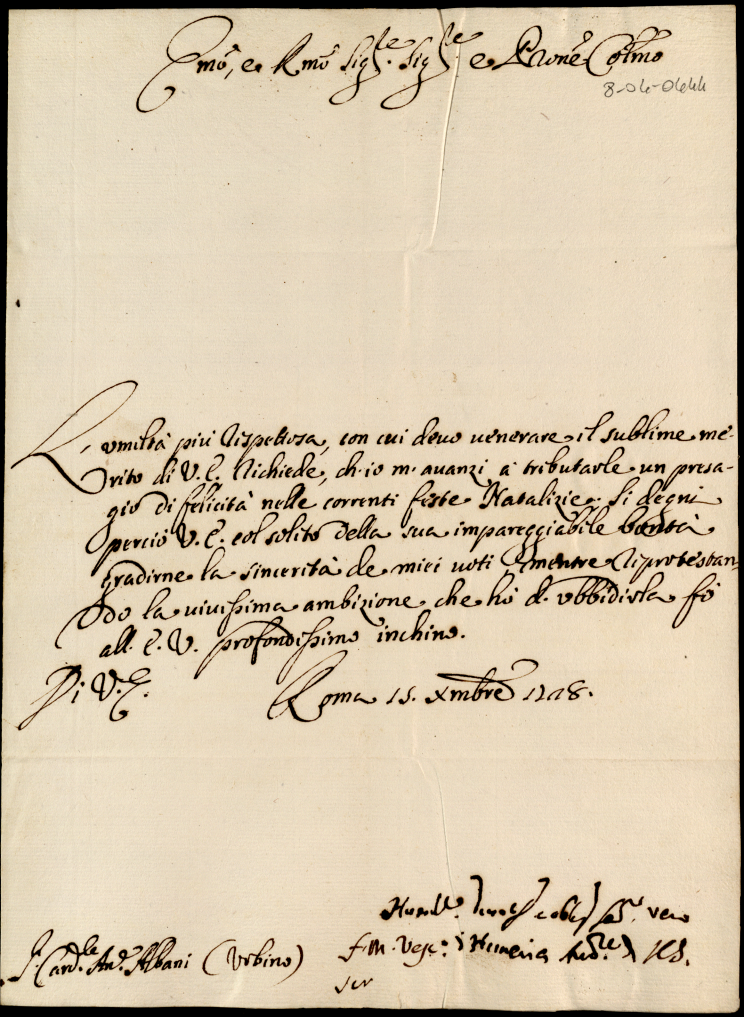 Emo, e Rmo Sigre Sigre e Prone Colmo
8-04-0644
L'umiltà più rispettosa, con cui devo venerare il sublime me-
rito di V. E. richiede, ch'io m'avanzi à tributarle un presa-
gio di felicità nelle correnti feste Natalizie. Si degni
perciò V. E. col solito della sua impareggiabile bontà
gradirne la sincerità de miei voti mentre riprotestan-
do la vivissima ambizione che hò d'ubbidirla fò
all' E. V. profondissimo inchino.
Di V. E. Roma 15. Xmbre
Humil.
f. M. Vesc.
Sr. Cardle. An. Albani (Urbino)